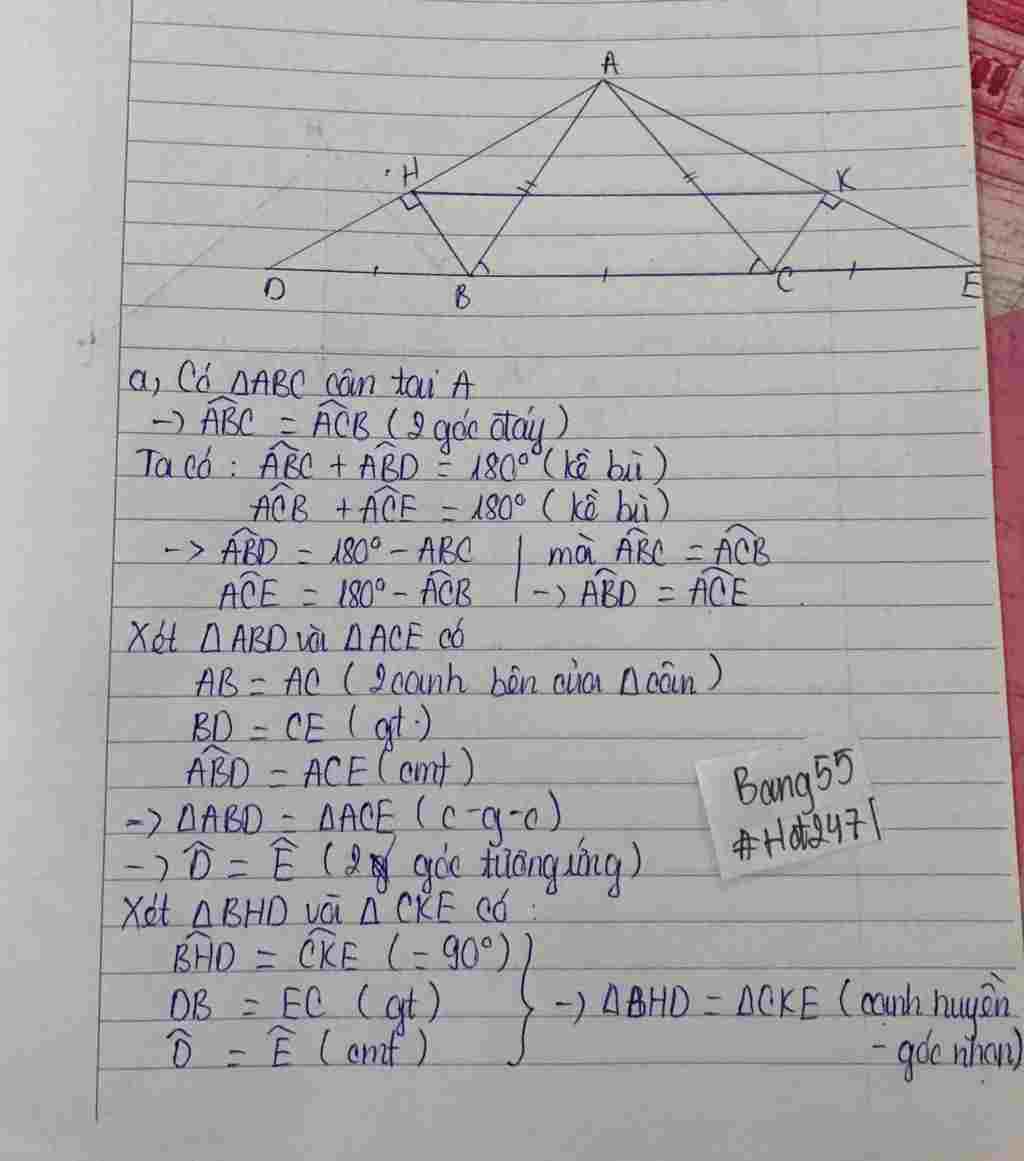 A
H
K
D
B
C
E
a, Có ΔABC cân tại A
-> \widehat{ABC} = \widehat{ACB} (2 góc đáy)
Ta có : \widehat{ABC} + \widehat{ABD} = 180° (kề bù)
\widehat{ACB} + \widehat{ACE} = 180° (kề bù)
-> \widehat{ABD} = 180° - ABC | mà \widehat{ABC} = \widehat{ACB}
\widehat{ACE} = 180° - \widehat{ACB} | -> \widehat{ABD} = \widehat{ACE}
Xét ΔABD và ΔACE có
AB = AC (2 cạnh bên của Δ cân)
BD = CE (gt)
\widehat{ABD} = ACE (cmt)
-> ΔABD = ΔACE (c-g-c)
-> \widehat{D} = \widehat{E} (2 góc tương ứng)
Xét ΔBHD và ΔCKE có :
\widehat{BHD} = \widehat{CKE} (= 90°)
DB = EC (gt) } -> ΔBHD = ΔCKE (cạnh huyền
\widehat{D} = \widehat{E} (cmt) - góc nhọn)
Bang55
#Hot247